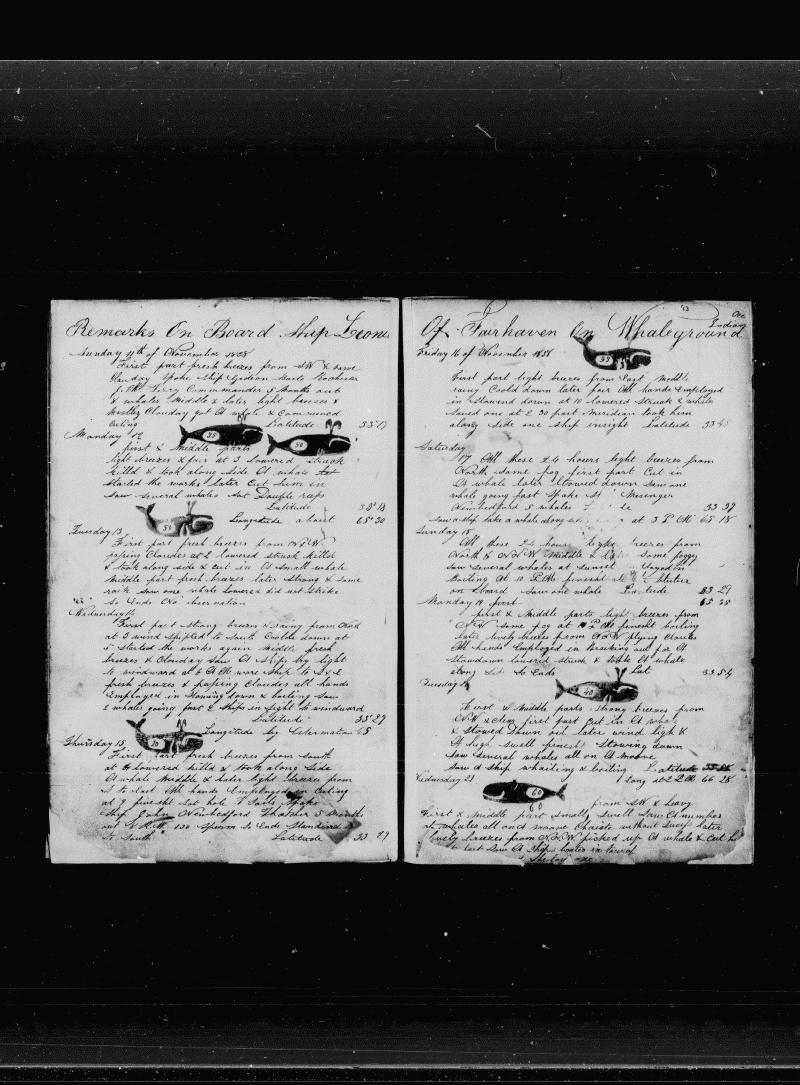 Remarks On Board Ship Leoni
Sunday 11th of November 1838
First part fresh breezes from NW & some
Clouday Spoke Ship Gideon Rochester
5 Months out
& whales Middle & later light breezes &
Mostley Clouday put A whale & Commenced
Cutting Latitude 33 17
35
50
Monday 12
first & Middle parts
light breezes & fair at 3 Lowered Struck
killd & took along Side A whale
Started the works later Cut him in
Saw Several whales Sot Double reefs
Latitude
50
Longetude about 65 30
Tuesday 13
First part fresh breezes from
pasing Cloudes at 2 lowered Struck killed
& took along side & cut in A Small whale
Middle part fresh breazes later Strong & Some
rain Saw one whale Lowered did not Strike
So Ends No observation
Wednesday 14
First part Strong breezes & rainy from
at 3 wind Shifted to South down at
5 Started the works again Middle fresh
breezes & Clouday Saw A Ships by light
to windward at 6 A M ware Ship to
fresh breezes & pasing Cloudes all hands
Employed in Stowing down & boiling Saw
2 whales going fast 2 Ships in Sight to windward
Latitude 33 27
Longetude by Estermation 65
30
Thursday 15
First Part fresh breezes from South
at Lowered killed & took along Side
A whale Middle & later light breezes from
S to East All hands Employed in Cutting
at 9 7 Sails Spoke
Ship John Newbedford Thatcher 5 Months
out 130 Sperm So Ends Standing
to South Latitude 33 29
Of Fairhaven On Whaleground
53
Indian
Friday 16 of November 1838
55
First part light breezes from East Middle
rainy later fair All hands Employed
in Stowend down at 10 lowered Struck 2 whale
Saved one at 2 30 part Meridian took him
along side one ship insight Latitude 33 45
Saturday
17 All these 24 hours light breezes from
North Some fog first part Cut in
A whale later Stowed down Saw one
whale going fast Spoke Mesinger
Newbedford 5 whales 33 37
Saw a ship take a whale along at 3 P M 65 18
Sunday 18
All these 24 hours light breezes from
North & N W Middle & Some foggy
Saw Several whales at Sunset
boiling At 10 P M fineshd
on board Saw one whale Latitude 33 29
65 25
Monday 19 first
first & Middle parts light breezes from
NW Some fog at P M fineshd boiling
later lively breezes from flying Cloudes
All hands Employed in breaking out for A
Stowdown lowered Struck & took A whale
along Side So Ends Lat 33 54
Tuesday
40
First & Middle parts Strong breezes from
& Clear first part Cut in A whale
& Stowed Down oil later wind light &
A high Swell fineshd Stowing down
Saw Several whales all on A moove
Saw A Ship whailing & boiling Latitude
Long at 2 P M 66 28
Wednesday 21
60
60
from SW & heavy
First & Middle part Small Swell Saw A number
of whales all on A moove Chaiste without later
lively breezes from picked up A whale & Cut
last Saw A Ships boates in tow of